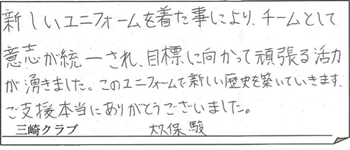 新しいユニフォームを着た事により、チームとして
意志が統一され、目標に向かって頑張る活力
が湧きました。このユニフォームで新しい歴史を築いていきます。
ご支援本当にありがとうございました。
三崎クラブ 大久保 駿